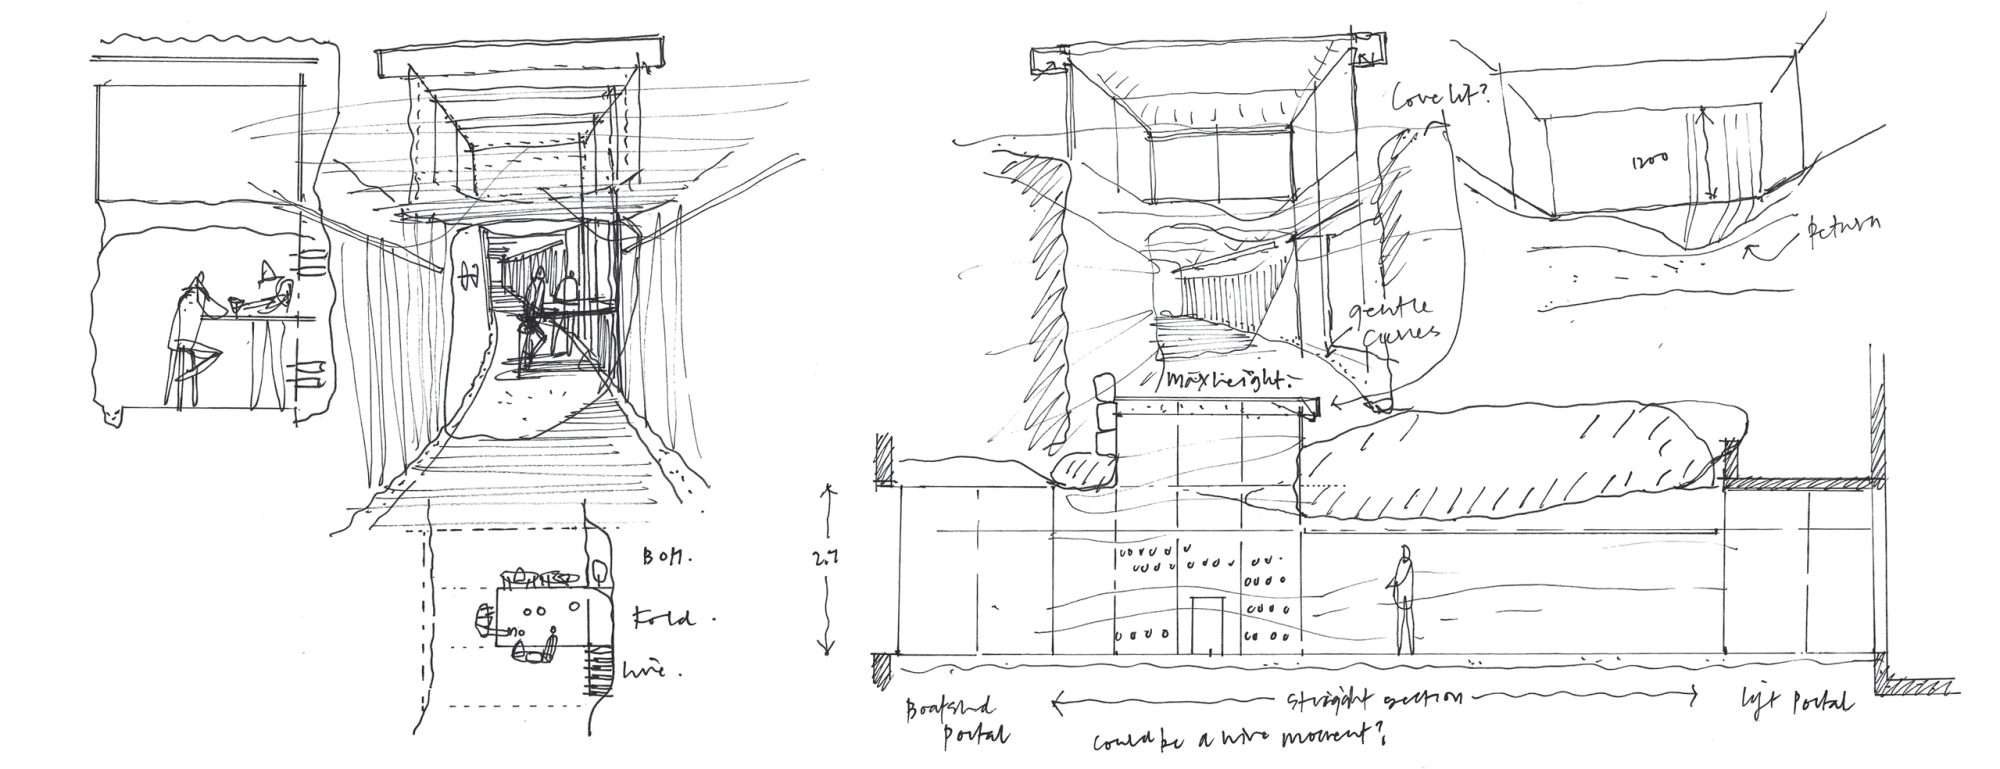 Cove lit?
1200
Return
gentle
curves
max height.
2.7
Fold.
Boatshed
Portal
straight section
lift Portal
could be a wine moment?